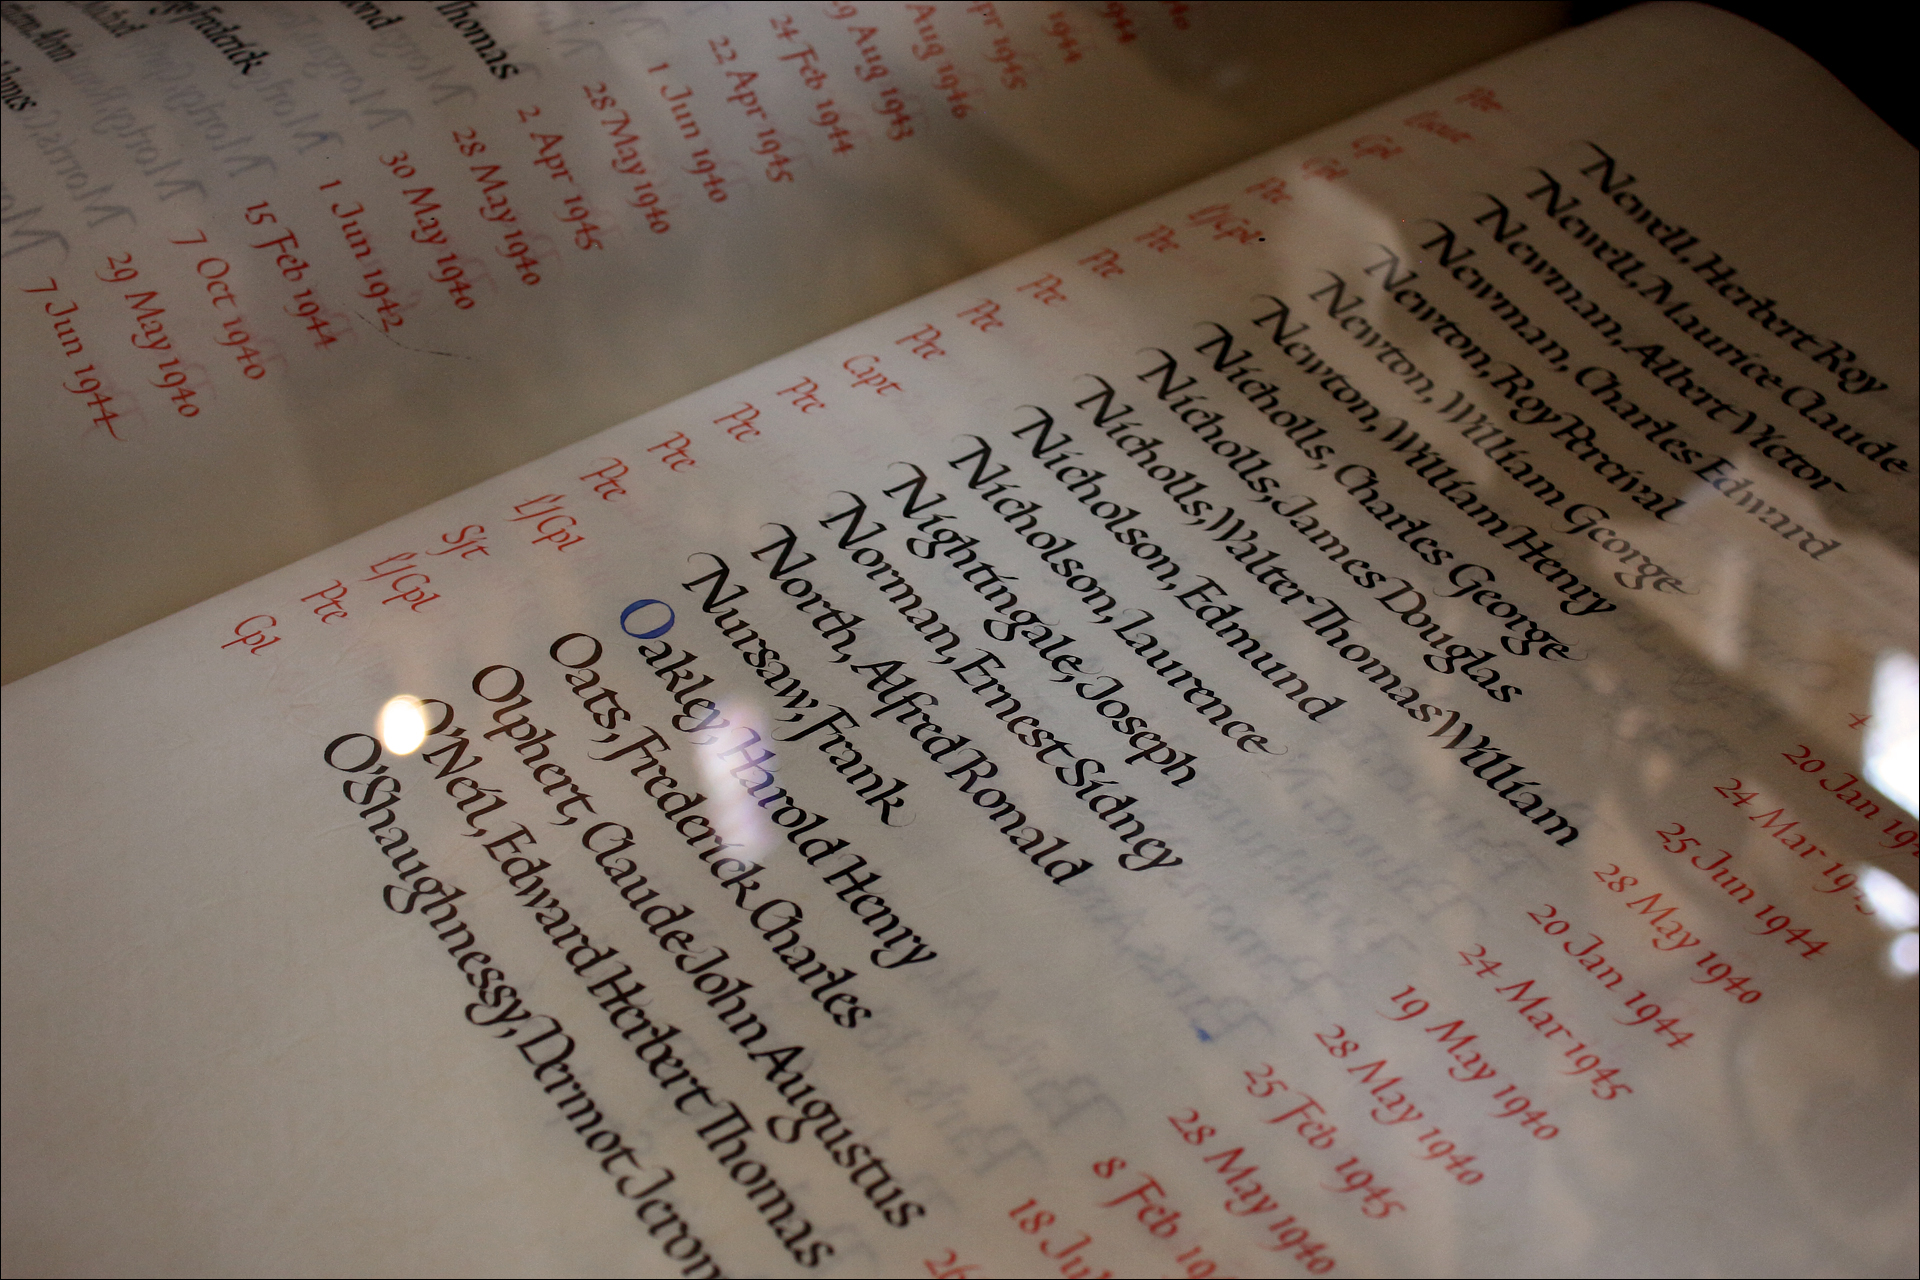 Thomas
ond
Frederick
1944
pr 1945
Aug 1946
9 Aug 1943
24 Feb 1944
22 Apr 1945
1 Jun 1940
28 May 1940
2 Apr 1945
28 May 1940
30 May 1940
1 Jun 1942
15 Feb 1944
7 Oct 1940
29 May 1940
7 Jun 1944
Pte Newell, Herbert Roy
Lieut Newell, Maurice Claude
Cpl Newman, Albert Victor
Cpl Newman, Charles Edward
Pte Newton, Roy Percival
L/Cpl Newton, William George 4
Pte Newton, William Henry 20 Jan 19
Pte Nicholls, Charles George 24 Mar 19
Pte Nicholls, James Douglas 25 Jun 1944
Pte Nicholls, Walter Thomas William 28 May 1940
Pte Nicholson, Edmund 20 Jan 1944
Capt Nicholson, Laurence 24 Mar 1945
Pte Nightingale, Joseph 19 May 1940
Pte Norman, Ernest Sidney 28 May 1940
Pte North, Alfred Ronald 25 Feb 1945
Pte Nursaw, Frank 28 May 1940
L/Cpl Oakley, Harold Henry 8 Feb 19
Sjt Oats, Frederick Charles 18 Ju
L/Cpl Olphert, Claude John Augustus 26
Pte O'Neil, Edward Herbert Thomas
Cpl O'Shaughnessy, Dermot Jerom